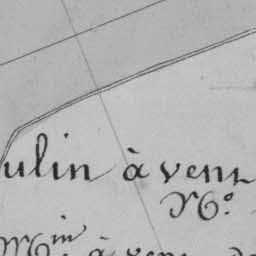 ulin à vent
No.
Min à vent